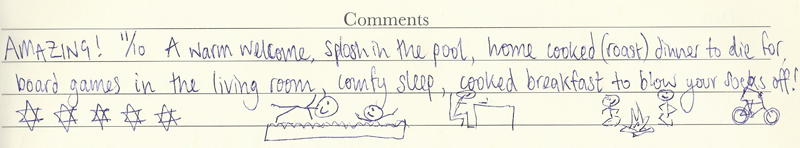 Comments
AMAZING! 11/10 A warm welcome, splash in the pool, home cooked (roast) dinner to die for,
board games in the living room, comfy sleep, cooked breakfast to blow your socks off!